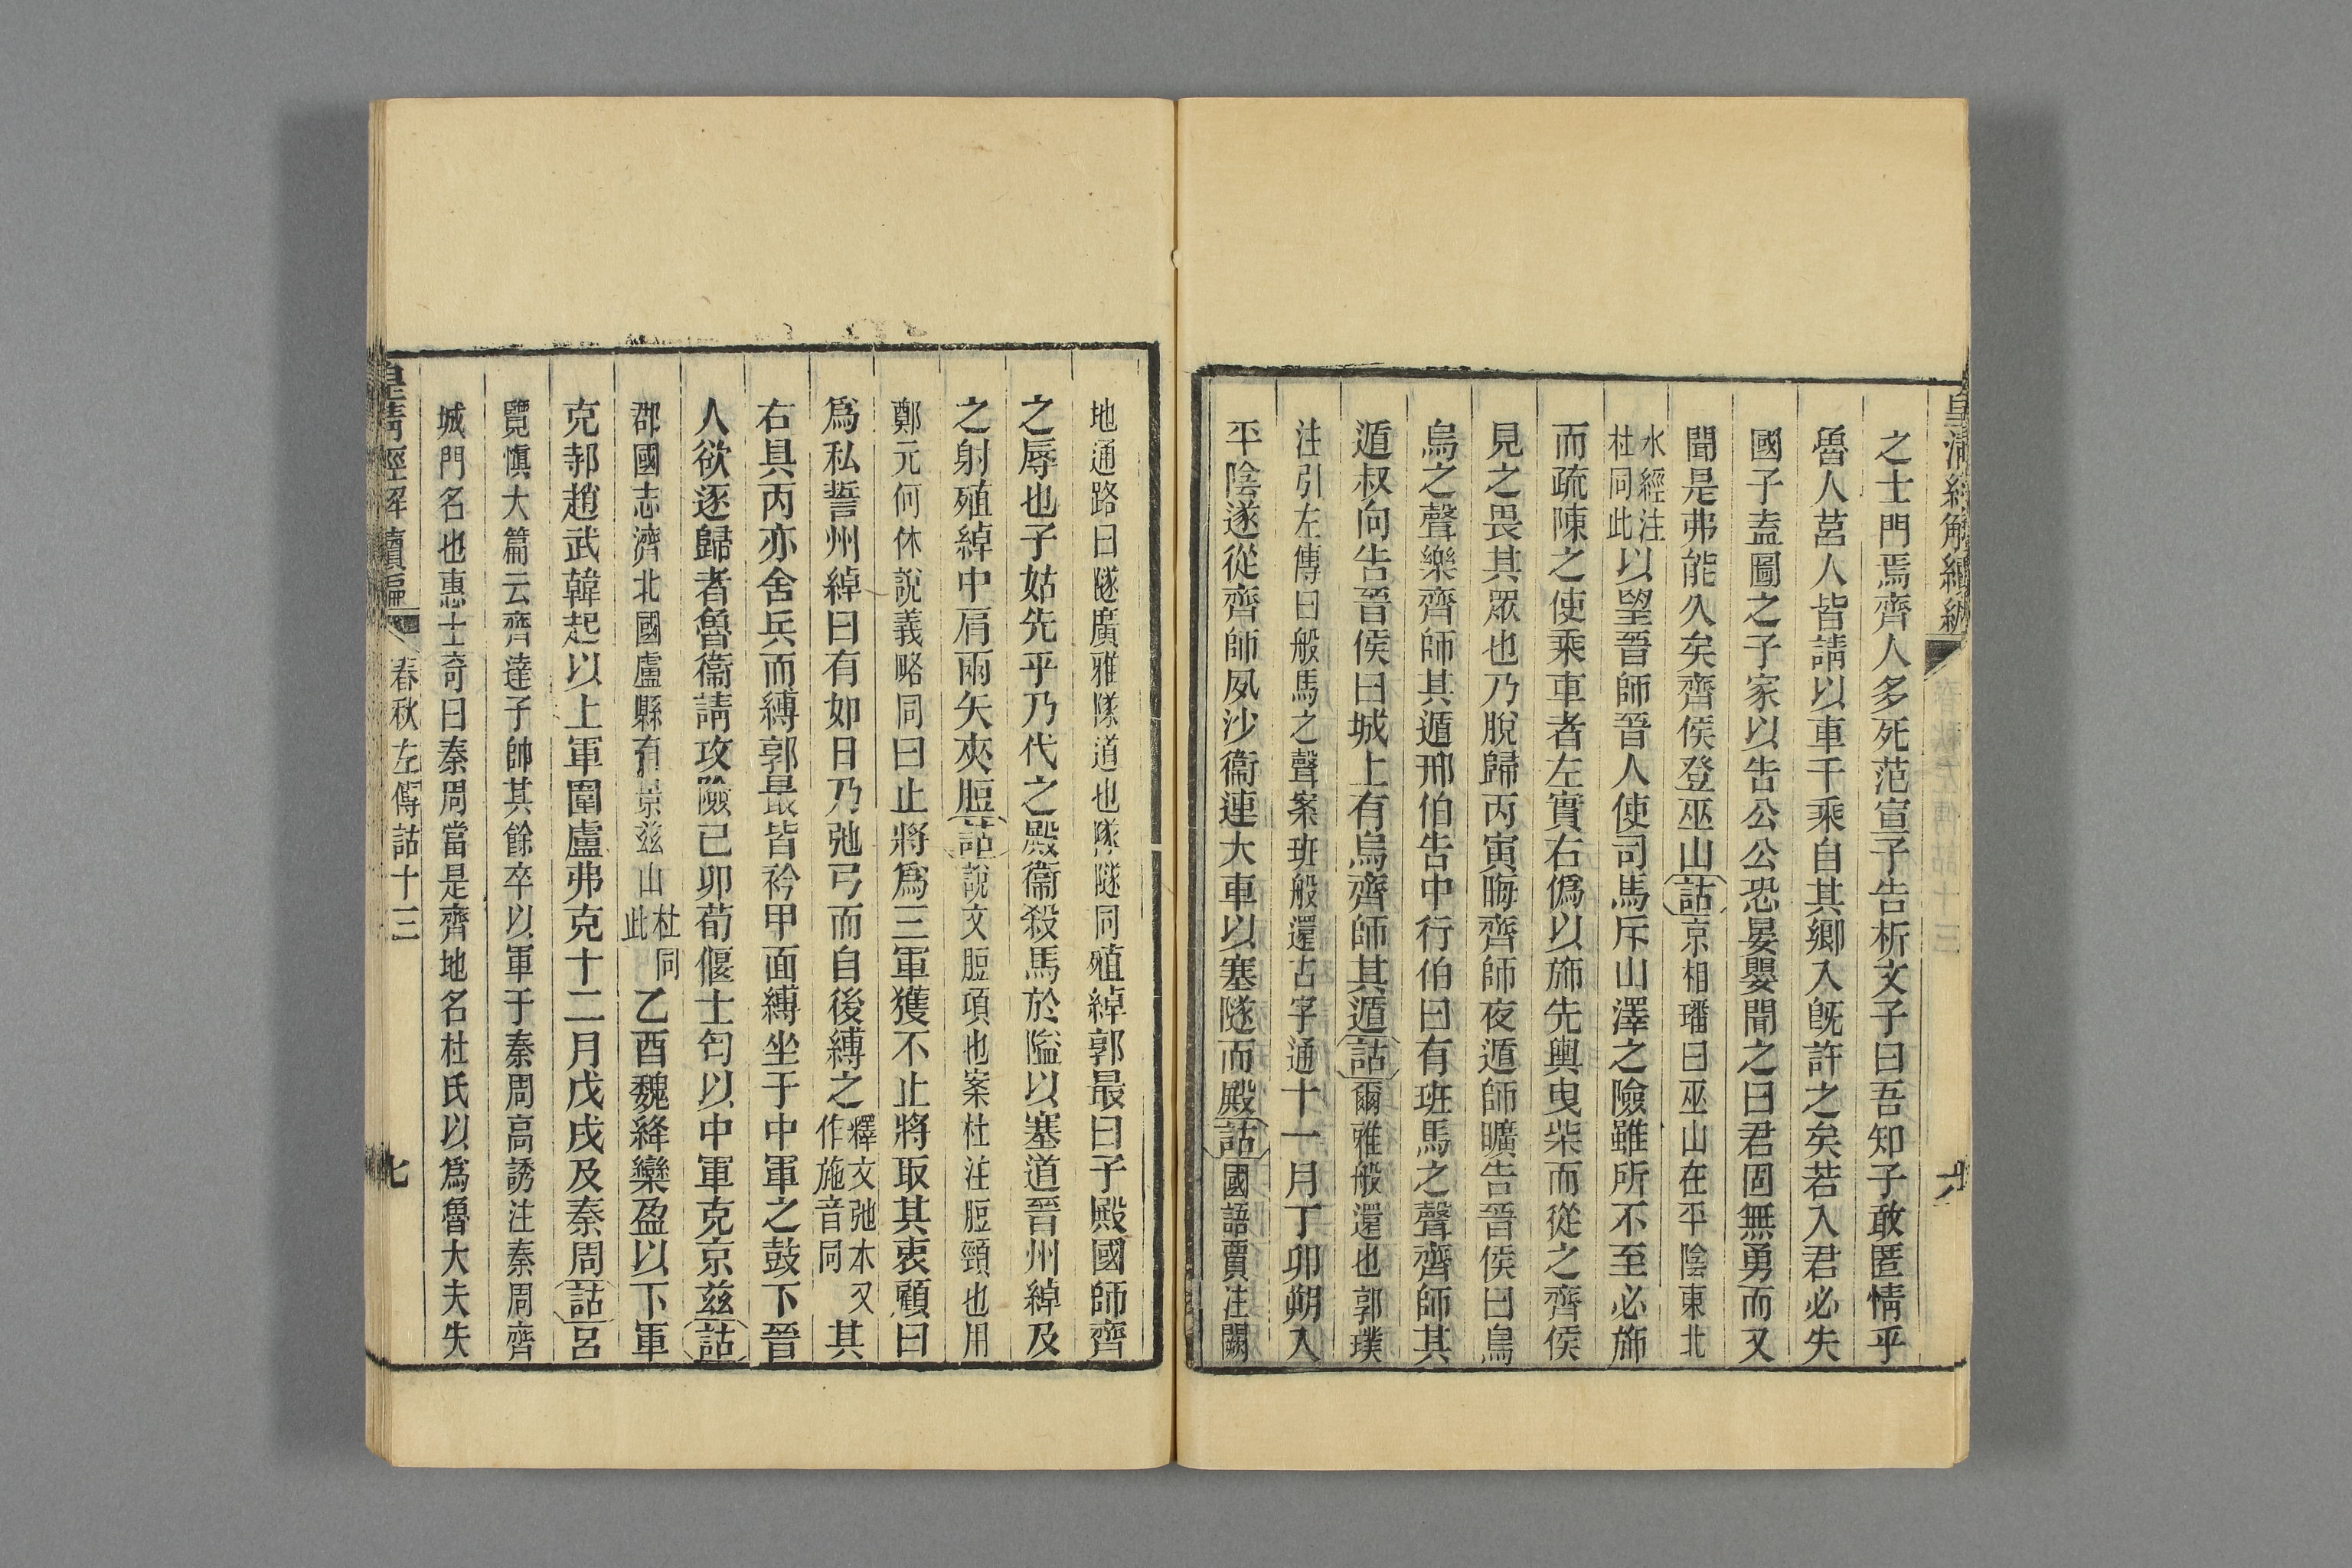 皇清經解續編
之士門焉齊人多死范宣子告析文子曰吾知子敢匿情乎
魯人莒人皆請以車千乘自其鄉入既許之矣若入君必失
國子盍圖之子家以告公公恐晏嬰聞之曰君固無勇而又
聞是弗能久矣齊侯登巫山詁京相璠曰巫山在平陰東北
水經注
杜同此
以望晉師晉人使司馬斥山澤之險雖所不至必斾
而疏陳之使乘車者左實右僞以斾先輿曳柴而從之齊侯
見之畏其眾也乃脫歸丙寅晦齊師夜遁師曠告晉侯曰鳥
烏之聲樂齊師其遁邢伯告中行伯曰有班馬之聲齊師其
遁叔向告晉侯曰城上有烏齊師其遁詁爾雅般還也郭璞
注引左傳曰般馬之聲案班般還古字通十一月丁卯朔入
平陰遂從齊師夙沙衞連大車以塞隧而殿詁國語賈注闕
地通路曰隧廣雅隊道也隊隧同殖綽郭最曰子殿國師齊
之辱也子姑先乎乃代之殿衞殺馬於隘以塞道晉州綽及
之射殖綽中肩兩矢夾脰詁說文脰項也案杜注脰頸也用
鄭元何休說義略同曰止將爲三軍獲不止將取其衷顧曰
爲私誓州綽曰有如日乃弛弓而自後縛之
釋文弛本又
作施音同
其
右具丙亦舍兵而縛郭最皆衿甲面縛坐于中軍之鼓下晉
人欲逐歸者魯衞請攻險己卯荀偃士匄以中軍克京兹詁
郡國志濟北國盧縣有景兹山
杜同
此
乙酉魏絳欒盈以下軍
克邿趙武韓起以上軍圍盧弗克十二月戊戌及秦周詁呂
覽愼大篇云齊達子帥其餘卒以軍于秦周高誘注秦周齊
城門名也惠士奇曰秦周當是齊地名杜氏以爲魯大夫失
皇清經解續編
春秋左傳詁十三
七